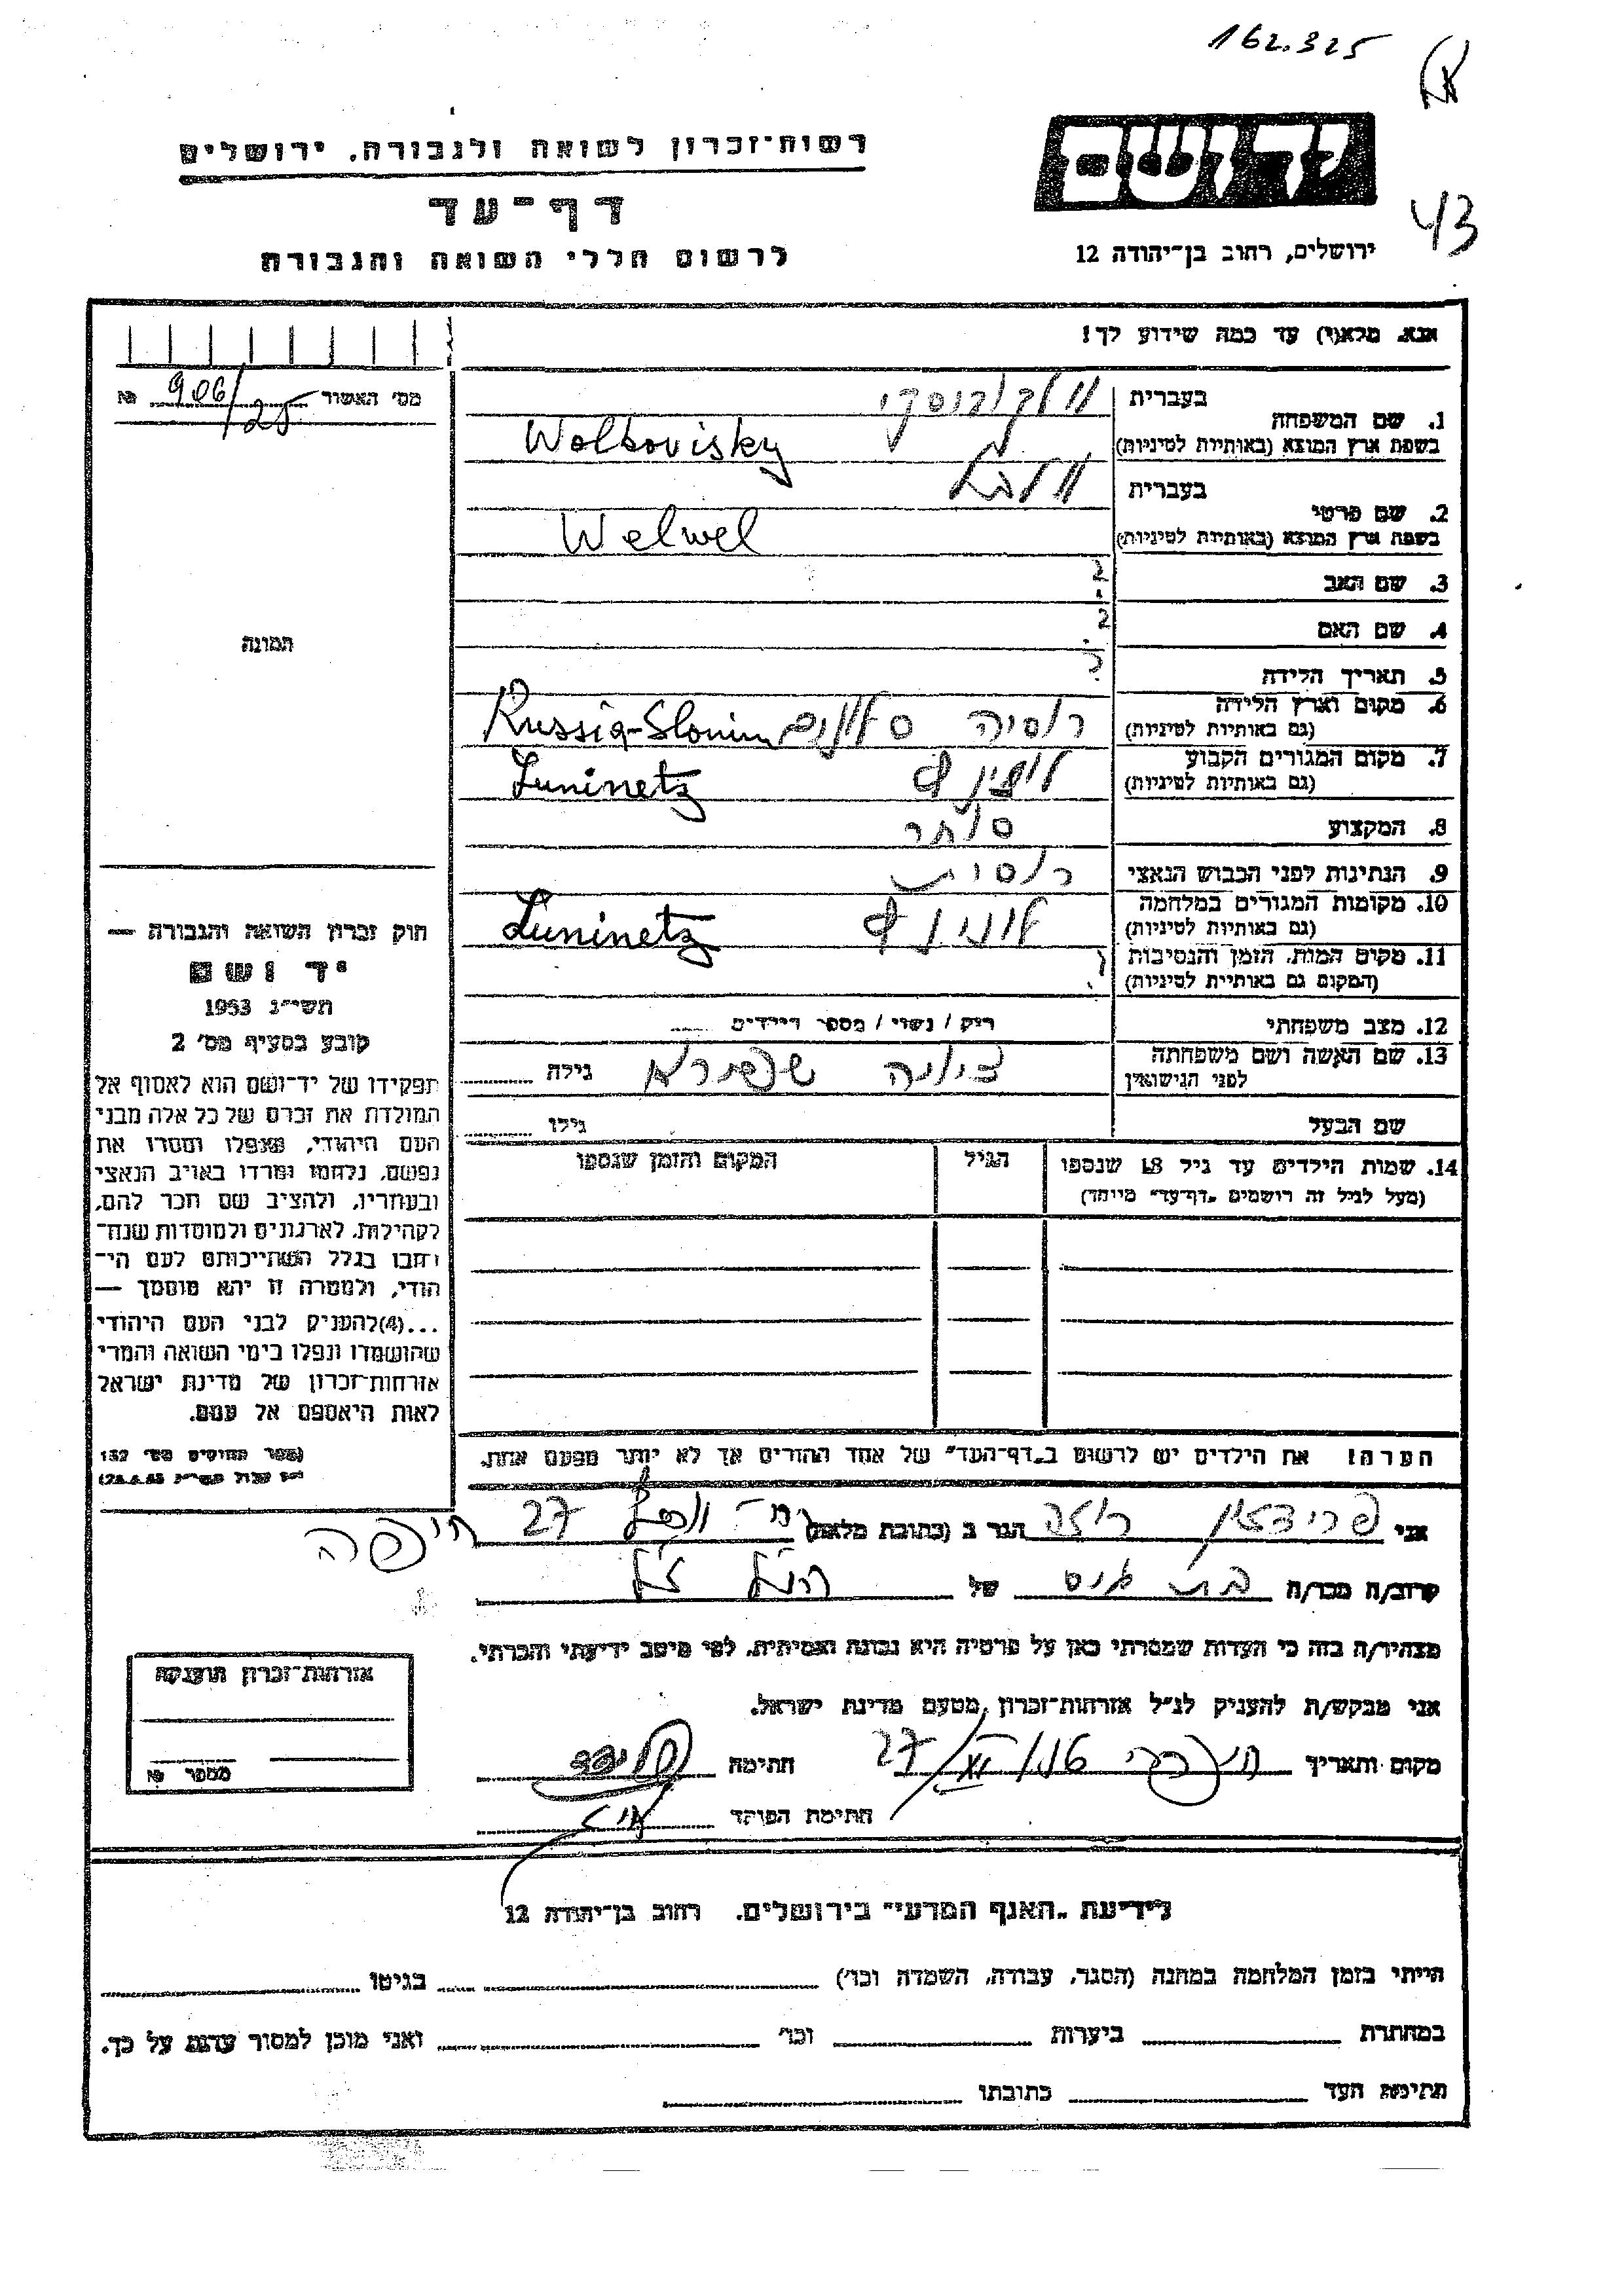 162.325
43
רשות־זכרון לשואה ולגבורה. ירושלים
דף־עד
לרשום חללי השואה והגבורה
יד ושם
ירושלים, רחוב בן־יהודה 12
אנא, מלא(י) עד כמה שידוע לך!
מס׳ האשור 906/25 №
1. שם המשפחה
בעברית
בשפת ארץ המוצא (באותיות לטיניות) Wolkovisky
2. שם פרטי
בעברית וולבל
בשפת ארץ המוצא (באותיות לטיניות) Welwel
3. שם האב ?
4. שם האם ?
5. תאריך הלידה ?
6. מקום וארץ הלידה רוסיה סלונים Russia-Slonim
(גם באותיות לטיניות)
7. מקום המגורים הקבוע לונינץ Luninetz
(גם באותיות לטיניות)
8. המקצוע סוחר
9. הנתינות לפני הכבוש הנאצי רוסית
10. מקומות המגורים במלחמה לונינץ Luninetz
(גם באותיות לטיניות)
11. מקום המות, הזמן והנסיבות ?
(המקום גם באותיות לטיניות)
12. מצב משפחתי רוק / נשוי / מספר הילדים
13. שם האשה ושם משפחתה שפירא גילה
לפני הנישואין
שם הבעל גילו
14. שמות הילדים עד גיל 18 שנספו הגיל המקום והזמן שנספו
(מעל לגיל זה רושמים „דף־עד״ מיוחד)
תמונה
חוק זכרון השואה והגבורה —
יד ושם
תשי״ג 1953
קובע בסעיף מס׳ 2
תפקידו של יד־ושם הוא לאסוף אל
המולדת את זכרם של כל אלה מבני
העם היהודי, שנפלו ומסרו את
נפשם, נלחמו ומרדו באויב הנאצי
ובעוזריו, ולהציב שם וזכר להם,
לקהילות, לארגונים ולמוסדות שנח־
רבו בגלל השתייכותם לעם הי־
הודי, ולמטרה זו יהא מוסמך —
...(4)להעניק לבני העם היהודי
שהושמדו ונפלו בימי השואה והמרי
אזרחות־זכרון של מדינת ישראל
לאות היאספם אל עמם.
(ספר החוקים מס׳ 132
הערה! את הילדים יש לרשום ב„דף־העד״ של אחד ההורים אך לא יותר מפעם אחת.
אני פרידמן הגר ב (כתובת מלאה) 27 חיפה
קרוב/ה מכר/ה בת גיס של הנ״ל ז״ל
מצהיר/ה בזה כי העדות שמסרתי כאן על פרטיה היא נכונה ואמיתית, לפי מיטב ידיעתי והכרתי.
אני מבקש/ת להעניק לנ״ל אזרחות־זכרון מטעם מדינת ישראל.
מקום ותאריך 27 חתימה
חתימת הפוקד
אזרחות־זכרון הוענקה
מספר №
לידיעת „האגף המדעי״ בירושלים. רחוב בן־יהודה 12
הייתי בזמן המלחמה במחנה (הסגר, עבודה, השמדה וכו׳) בגיטו
במחתרת ביערות וכו׳ ואני מוכן למסור עדות על כך.
חתימת העד כתובתו